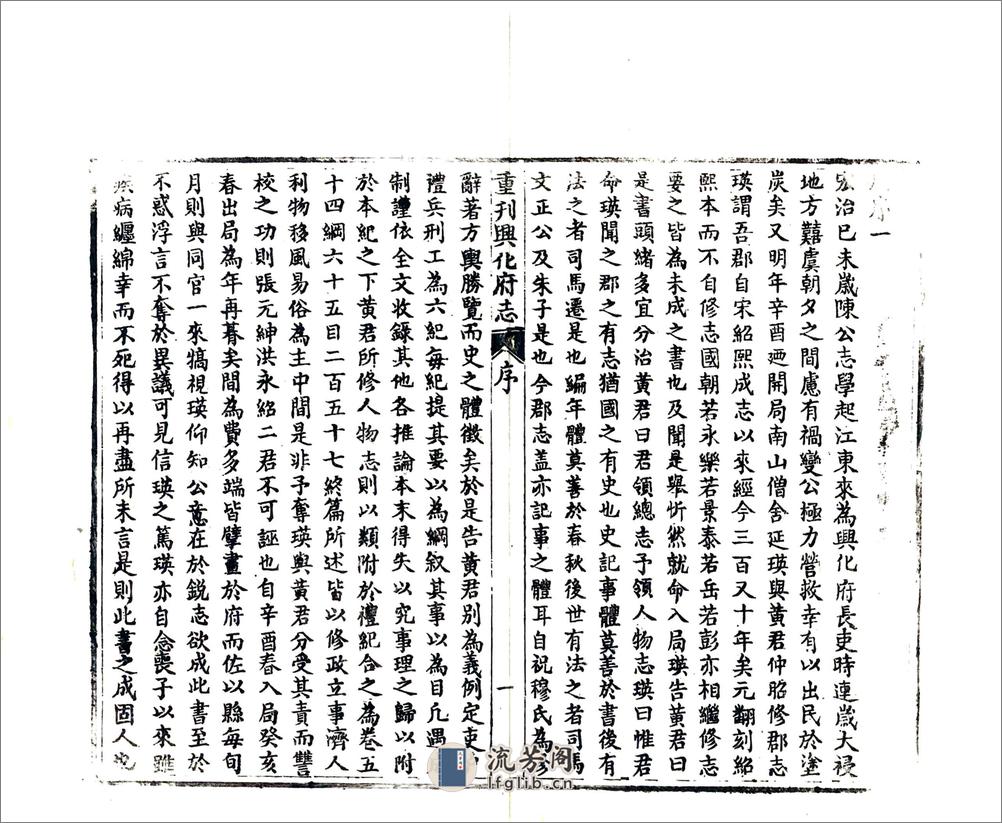 序一
宏治已未嵗陳公志學起江東來為興化府長吏時連嵗大祲
地方囏虞朝夕之間慮有禍變公極力營救幸有以出民於塗
炭矣又明年辛酉廼開局南山僧舍延瑛與黃君仲昭修郡志
瑛謂吾郡自宋紹熙成志以來經今三百又十年矣元翻刻紹
熙本而不自修志國朝若永樂若景泰若岳若彭亦相繼修志
要之皆為未成之書也及聞是舉忻然就命入局瑛告黃君曰
是書頭緒多宜分治黃君曰君領總志予領人物志瑛曰惟君
命瑛聞之郡之有志猶國之有史也史記事體莫善於書後有
法之者司馬遷是也編年體莫善於春秋後世有法之者司馬
文正公及朱子是也今郡志盖亦記事之體耳自祝穆氏為修
重刋興化府志
序
一
辭著方輿勝覽而史之體徵矣於是告黃君别為義例定吏户
禮兵刑工為六紀每紀提其要以為綱叙其事以為目凡遇
制謹依全文收錄其他各推論本末得失以究事理之歸以附
於本紀之下黃君所修人物志則以類附於禮紀合之為卷五
十四綱六十五目二百五十七終篇所述皆以修政立事濟人
利物移風易俗為主中間是非予奪瑛與黃君分受其責而讐
校之功則張元紳洪永紹二君不可誣也自辛酉春入局癸亥
春出局為年再朞矣間為費多端皆擘畫於府而佐以縣每旬
月則與同官一來犒視瑛仰知公意在於鋭志欲成此書至於
不惑浮言不奪於異議可見信瑛之篤瑛亦自念喪子以來雖
疾病纏綿幸而不死得以再盡所未言是則此書之成固人也
流芳阁
lfglib.cn